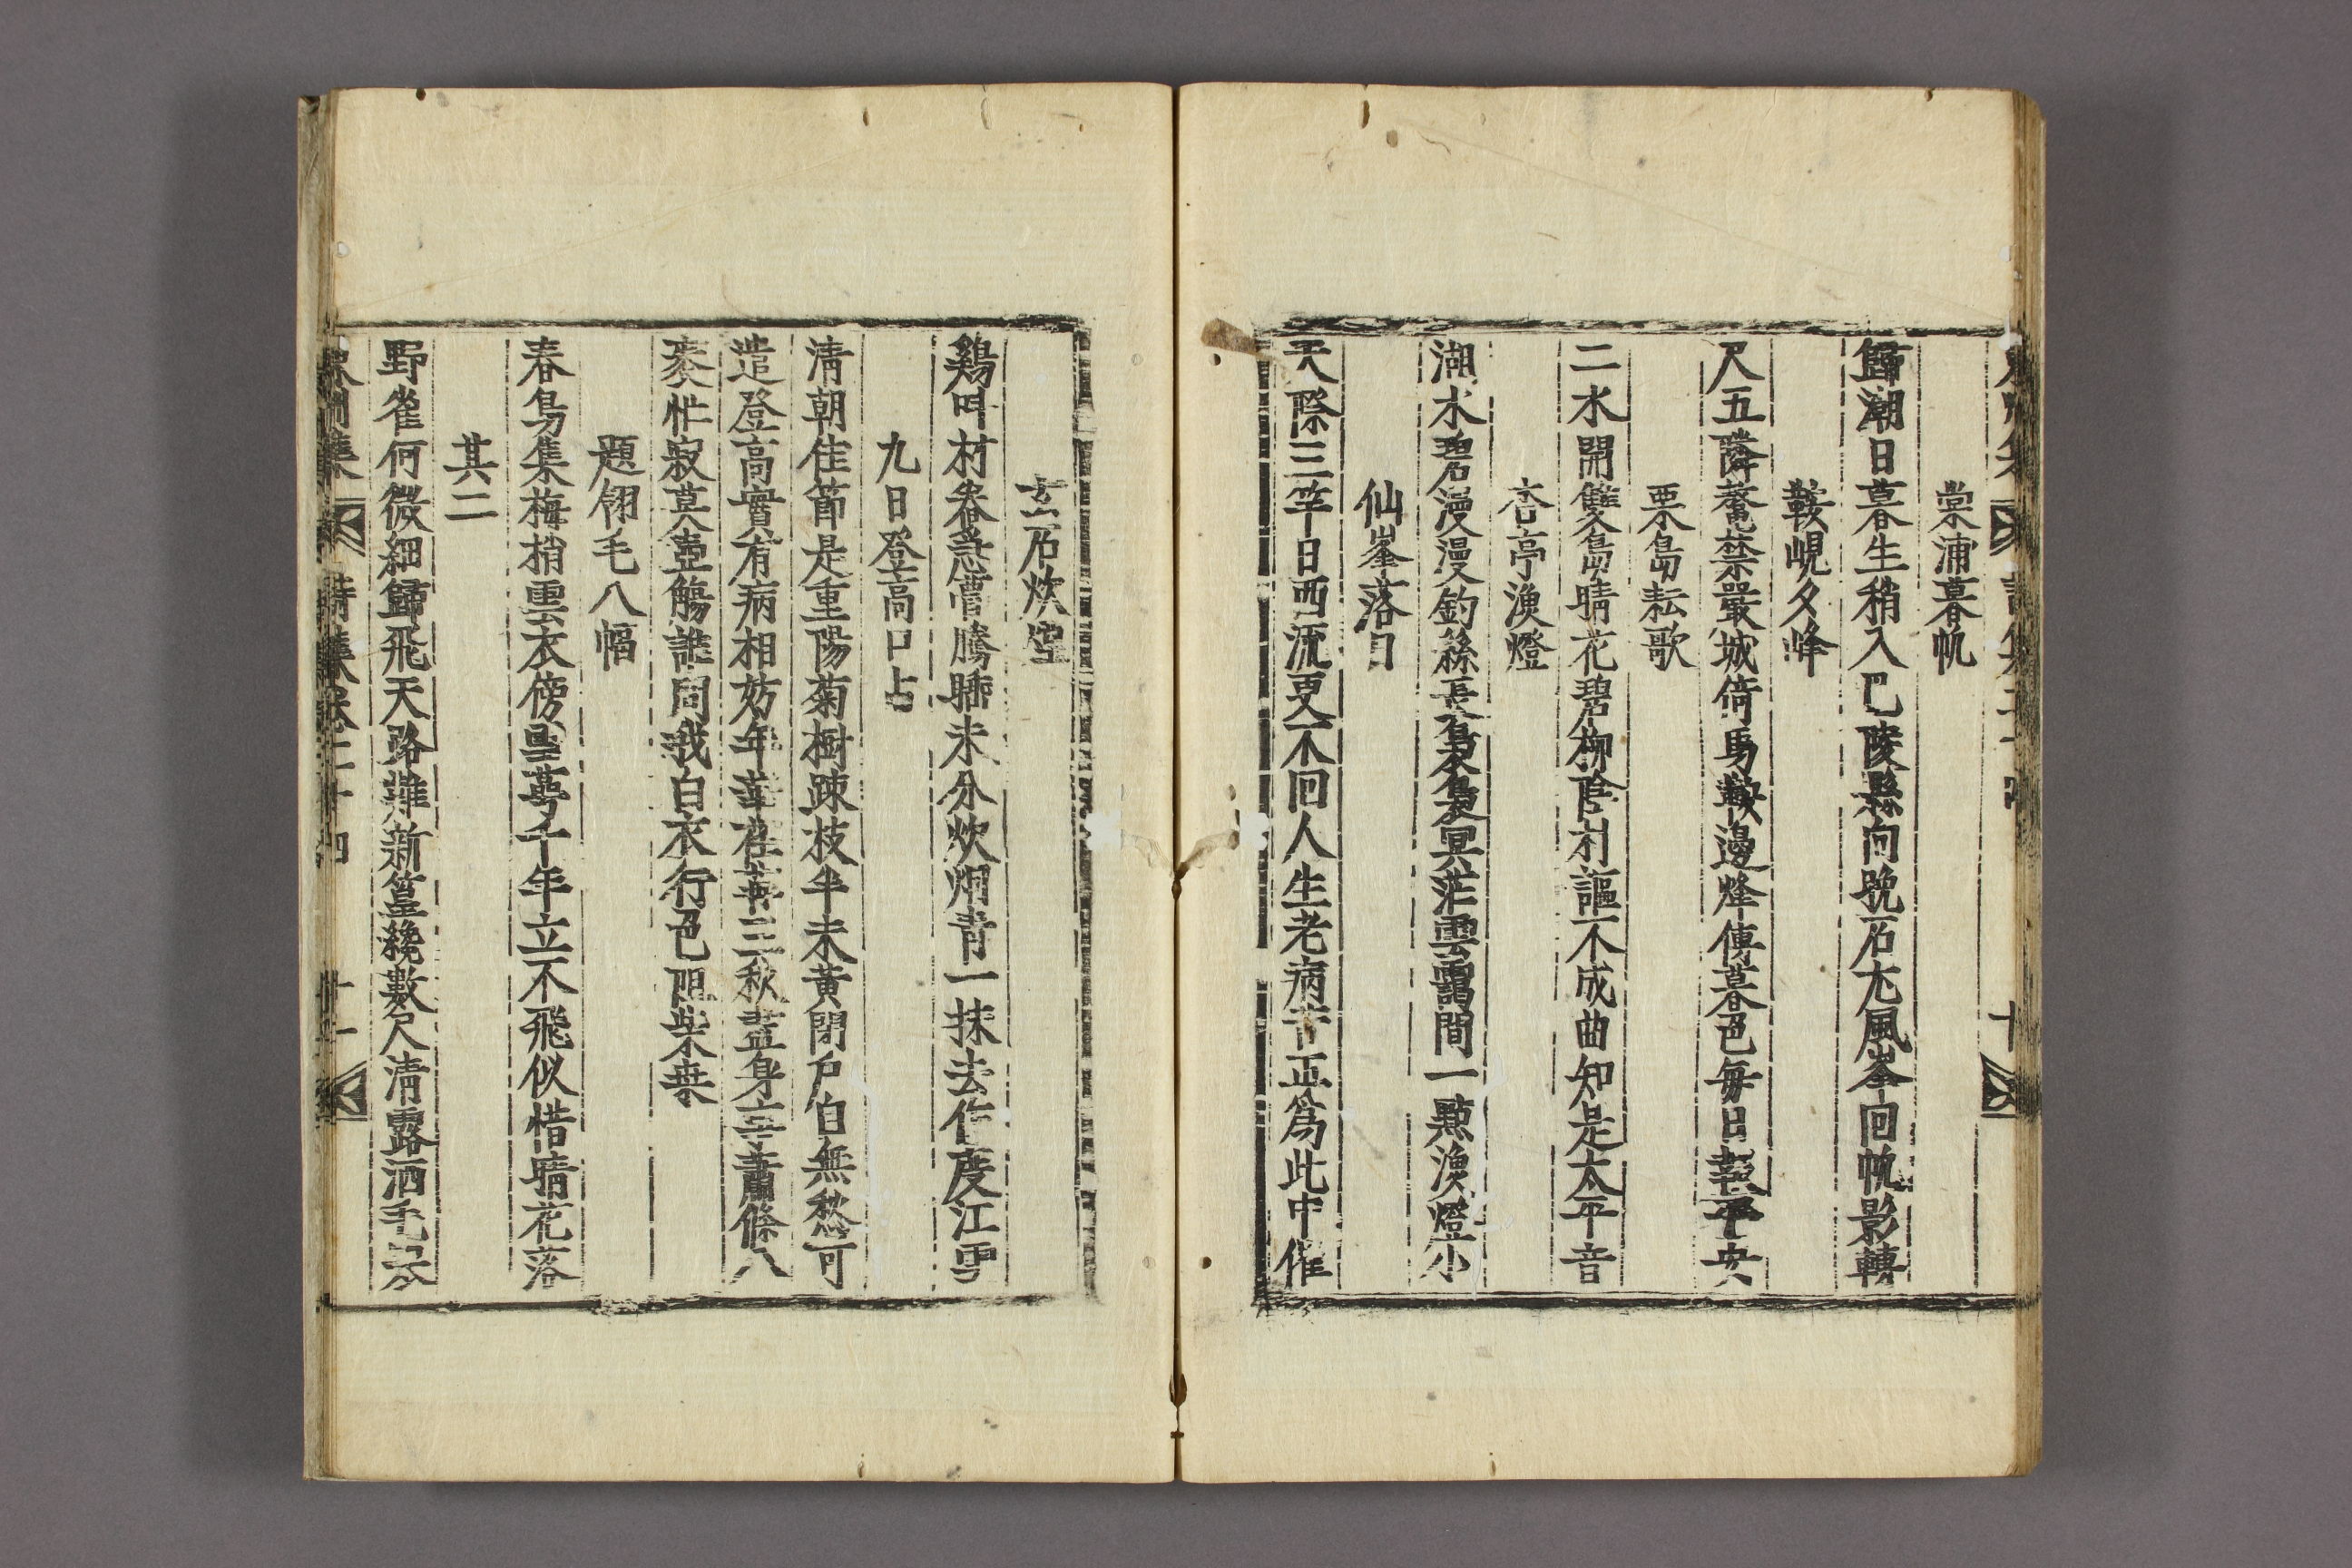 棠浦暮帆
歸潮日暮生稍入巴陵縣向晩石尤風峯回帆影轉
鞍峴夕烽
尺五隣蓬禁嚴城倚馬鞍邊烽傳暮色每日報平安
栗島耘歌
二水開雙島晴花碧柳陰村謳不成曲知是太平音
杏亭漁燈
湖水碧漫漫釣絲長裊裊冥茫雲靄間一點漁燈小
仙峯落日
天際三竿日西流更不回人生老病苦正爲此中催
玄石炊烟
鷄叫村舂急瞢騰睡未分炊烟青一抹去作度江雲
九日登高口占
清朝佳節是重陽菊樹踈枝半未黃閉戶自無愁可
遣登高實有病相妨年華荏苒三秋盡身事蕭條八
袠忙寂莫壺觴誰問我白衣行色阻柴桑
題翎毛八幅
春鳥集梅梢雲衣傍墨夢千年立不飛似惜晴花落
其二
野雀何微細歸飛天路難新篁纔數尺清露洒毛
詩集卷二十四 十一